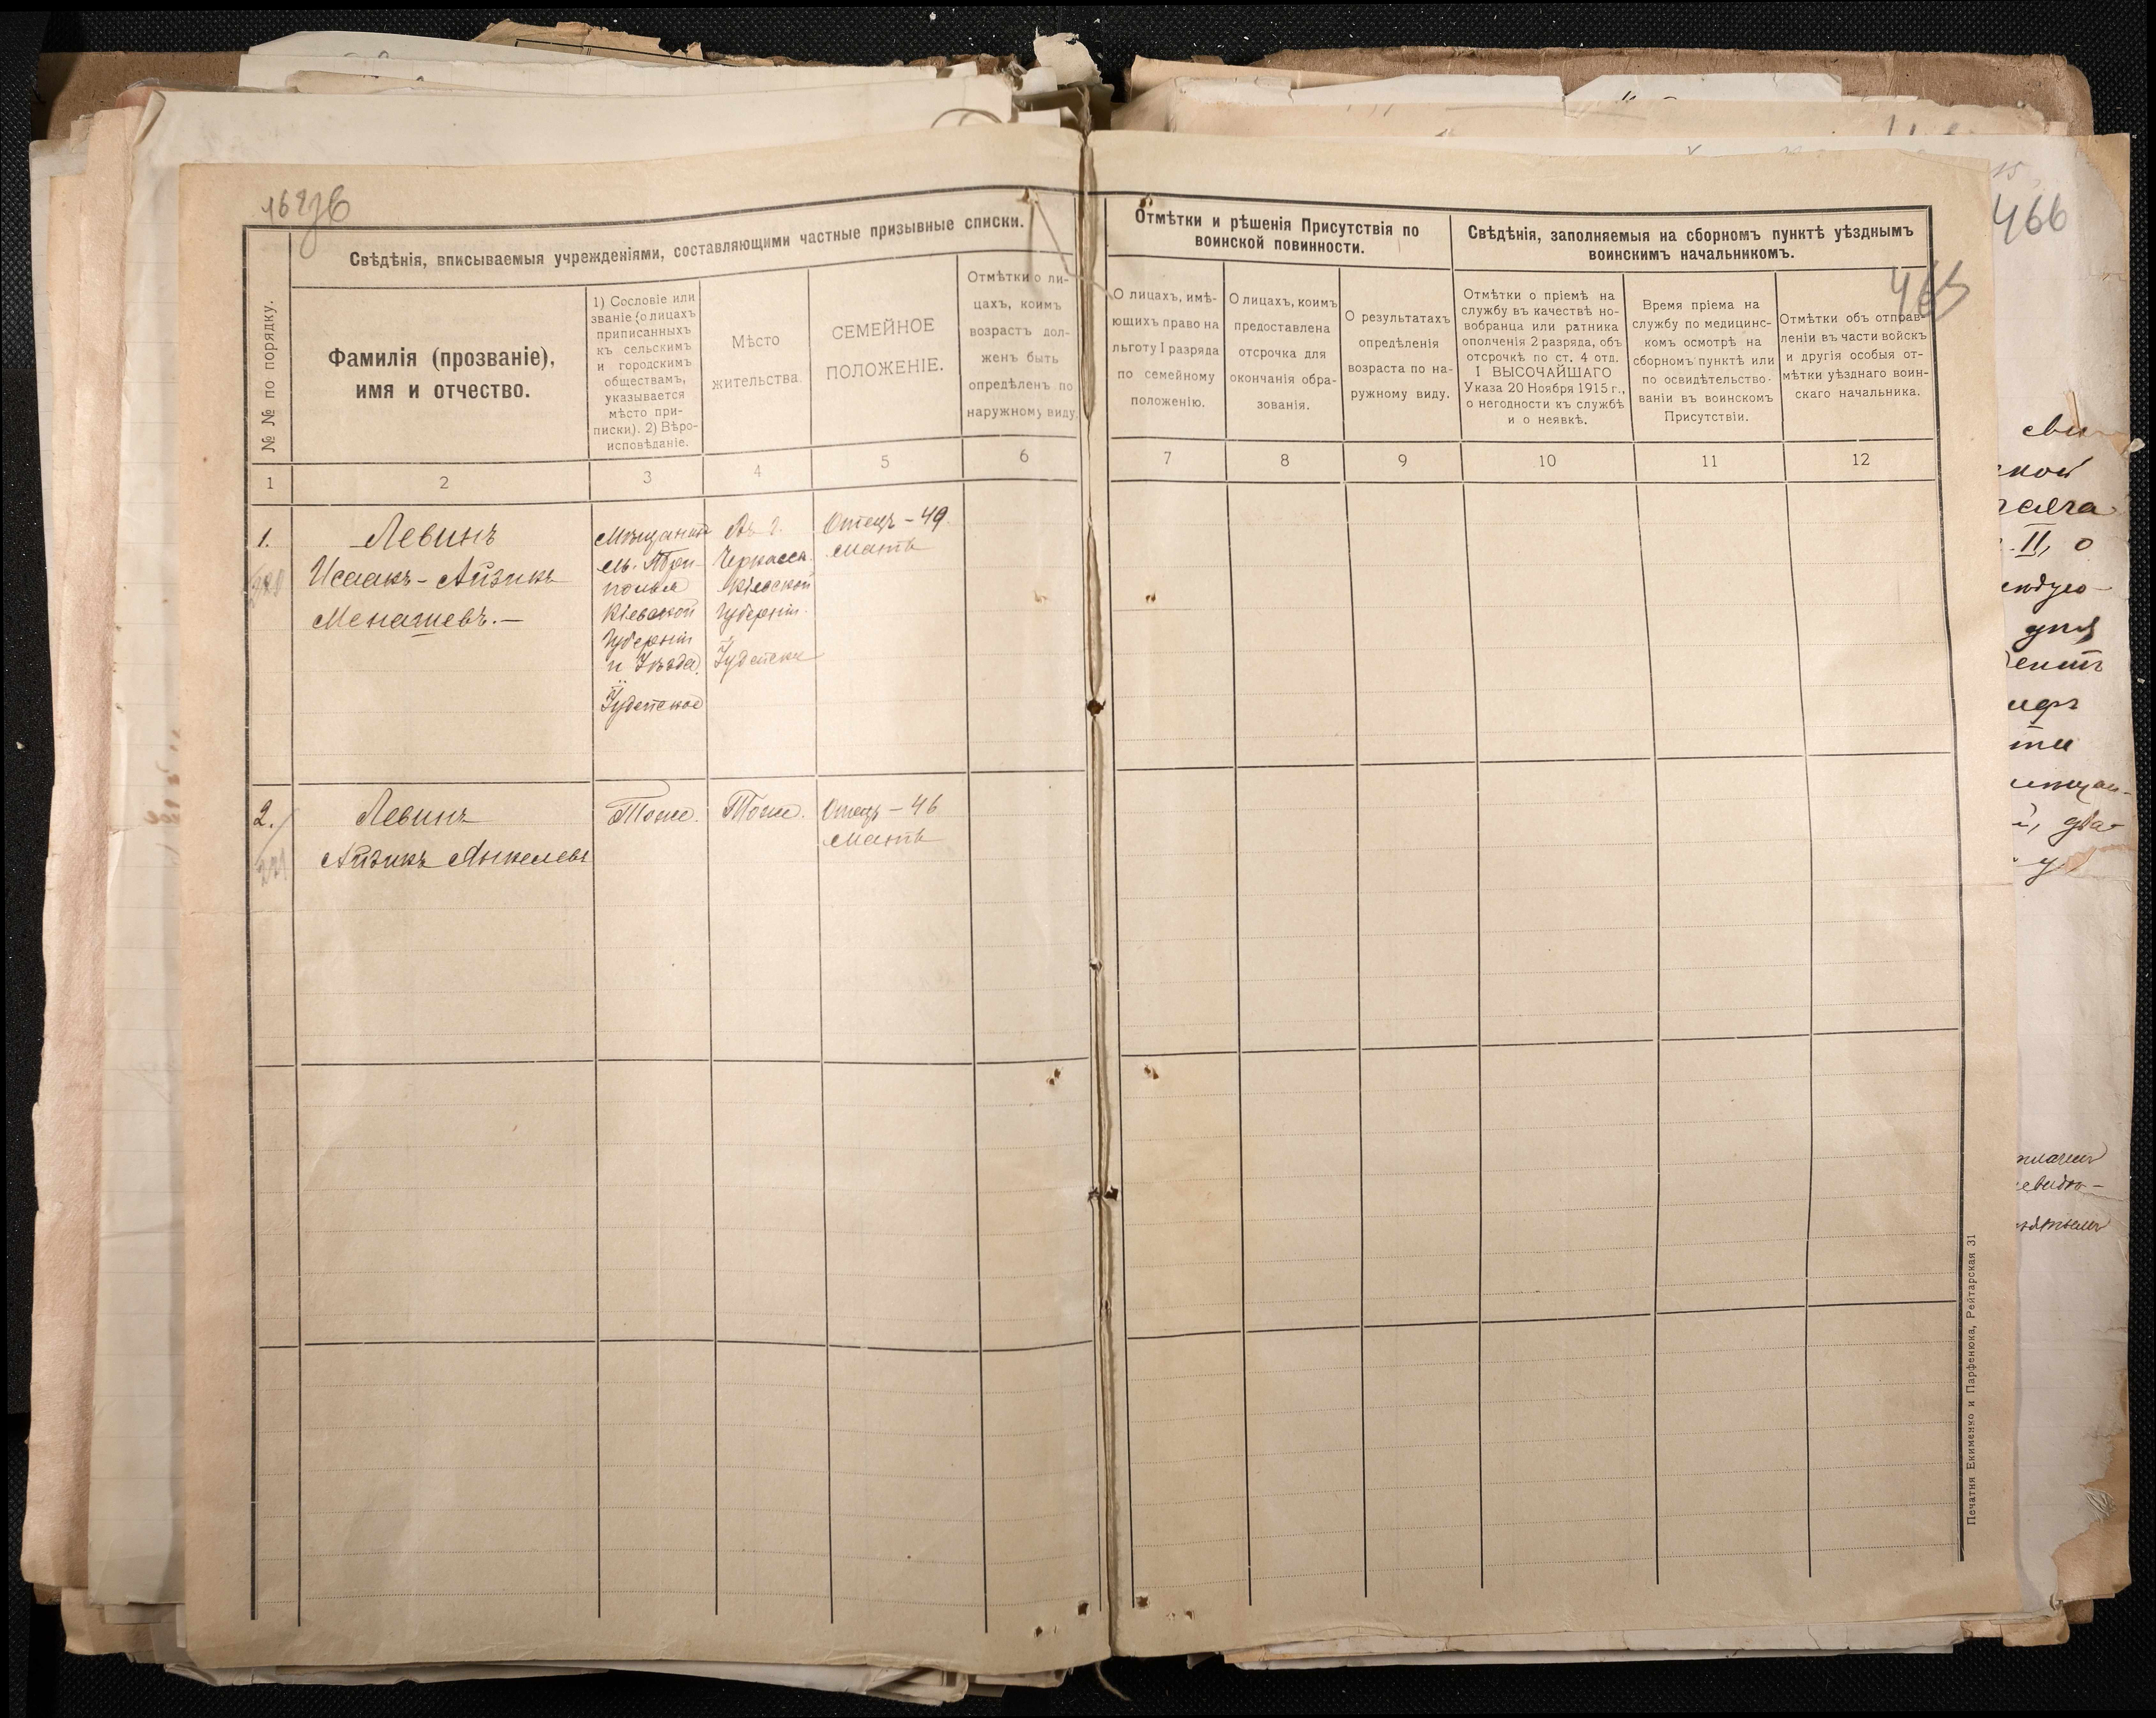 466
465
Свѣдѣнія, вписываемыя учрежденіями, составляющими частные призывные списки.
№ № по порядку.
Фамилія (прозваніе),
имя и отчество.
1) Сословіе или
званіе (о лицахъ
приписанныхъ
къ сельскимъ
и городскимъ
обществамъ,
указывается
мѣсто при-
писки). 2) Вѣро-
исповѣданіе.
Мѣсто
жительства.
СЕМЕЙНОЕ
ПОЛОЖЕНІЕ.
Отмѣтки о ли-
цахъ, коимъ
возрастъ дол-
женъ быть
опредѣленъ по
наружному виду.
1 2 3 4 5 6
1.
Левинъ
Исаакъ-Айзикъ
Менашевъ.—
Мѣщанинъ
м. Три-
полья
Кіевской
Губерніи
и Уѣзда.
Іудейское
Въ г.
Черкассы
Кіевской
Губерніи.
Отецъ - 49.
Мать
2.
Левинъ
Айзикъ Янкелевъ
Тоже.
Тоже.
Отецъ - 46
Мать
Отмѣтки и рѣшенія Присутствія по
воинской повинности.
О лицахъ, имѣ-
ющихъ право на
льготу I разряда
по семейному
положенію.
О лицахъ, коимъ
предоставлена
отсрочка для
окончанія обра-
зованія.
О результатахъ
опредѣленія
возраста по на-
ружному виду.
Свѣдѣнія, заполняемыя на сборномъ пунктѣ уѣзднымъ
воинскимъ начальникомъ.
Отмѣтки о пріемѣ на
службу въ качествѣ но-
вобранца или ратника
ополченія 2 разряда, объ
отсрочкѣ по ст. 4 отд.
I ВЫСОЧАЙШАГО
Указа 20 Ноября 1915 г.,
о негодности къ службѣ
и о неявкѣ.
Время пріема на
службу по медицинс-
комъ осмотрѣ на
сборномъ пунктѣ или
по освидѣтельство-
ваніи въ воинскомъ
Присутствіи.
Отмѣтки объ отправ-
леніи въ части войскъ
и другія особыя от-
мѣтки уѣзднаго воин-
скаго начальника.
7 8 9 10 11 12
Печатня Екименко и Парфенюка, Рейтарская 31